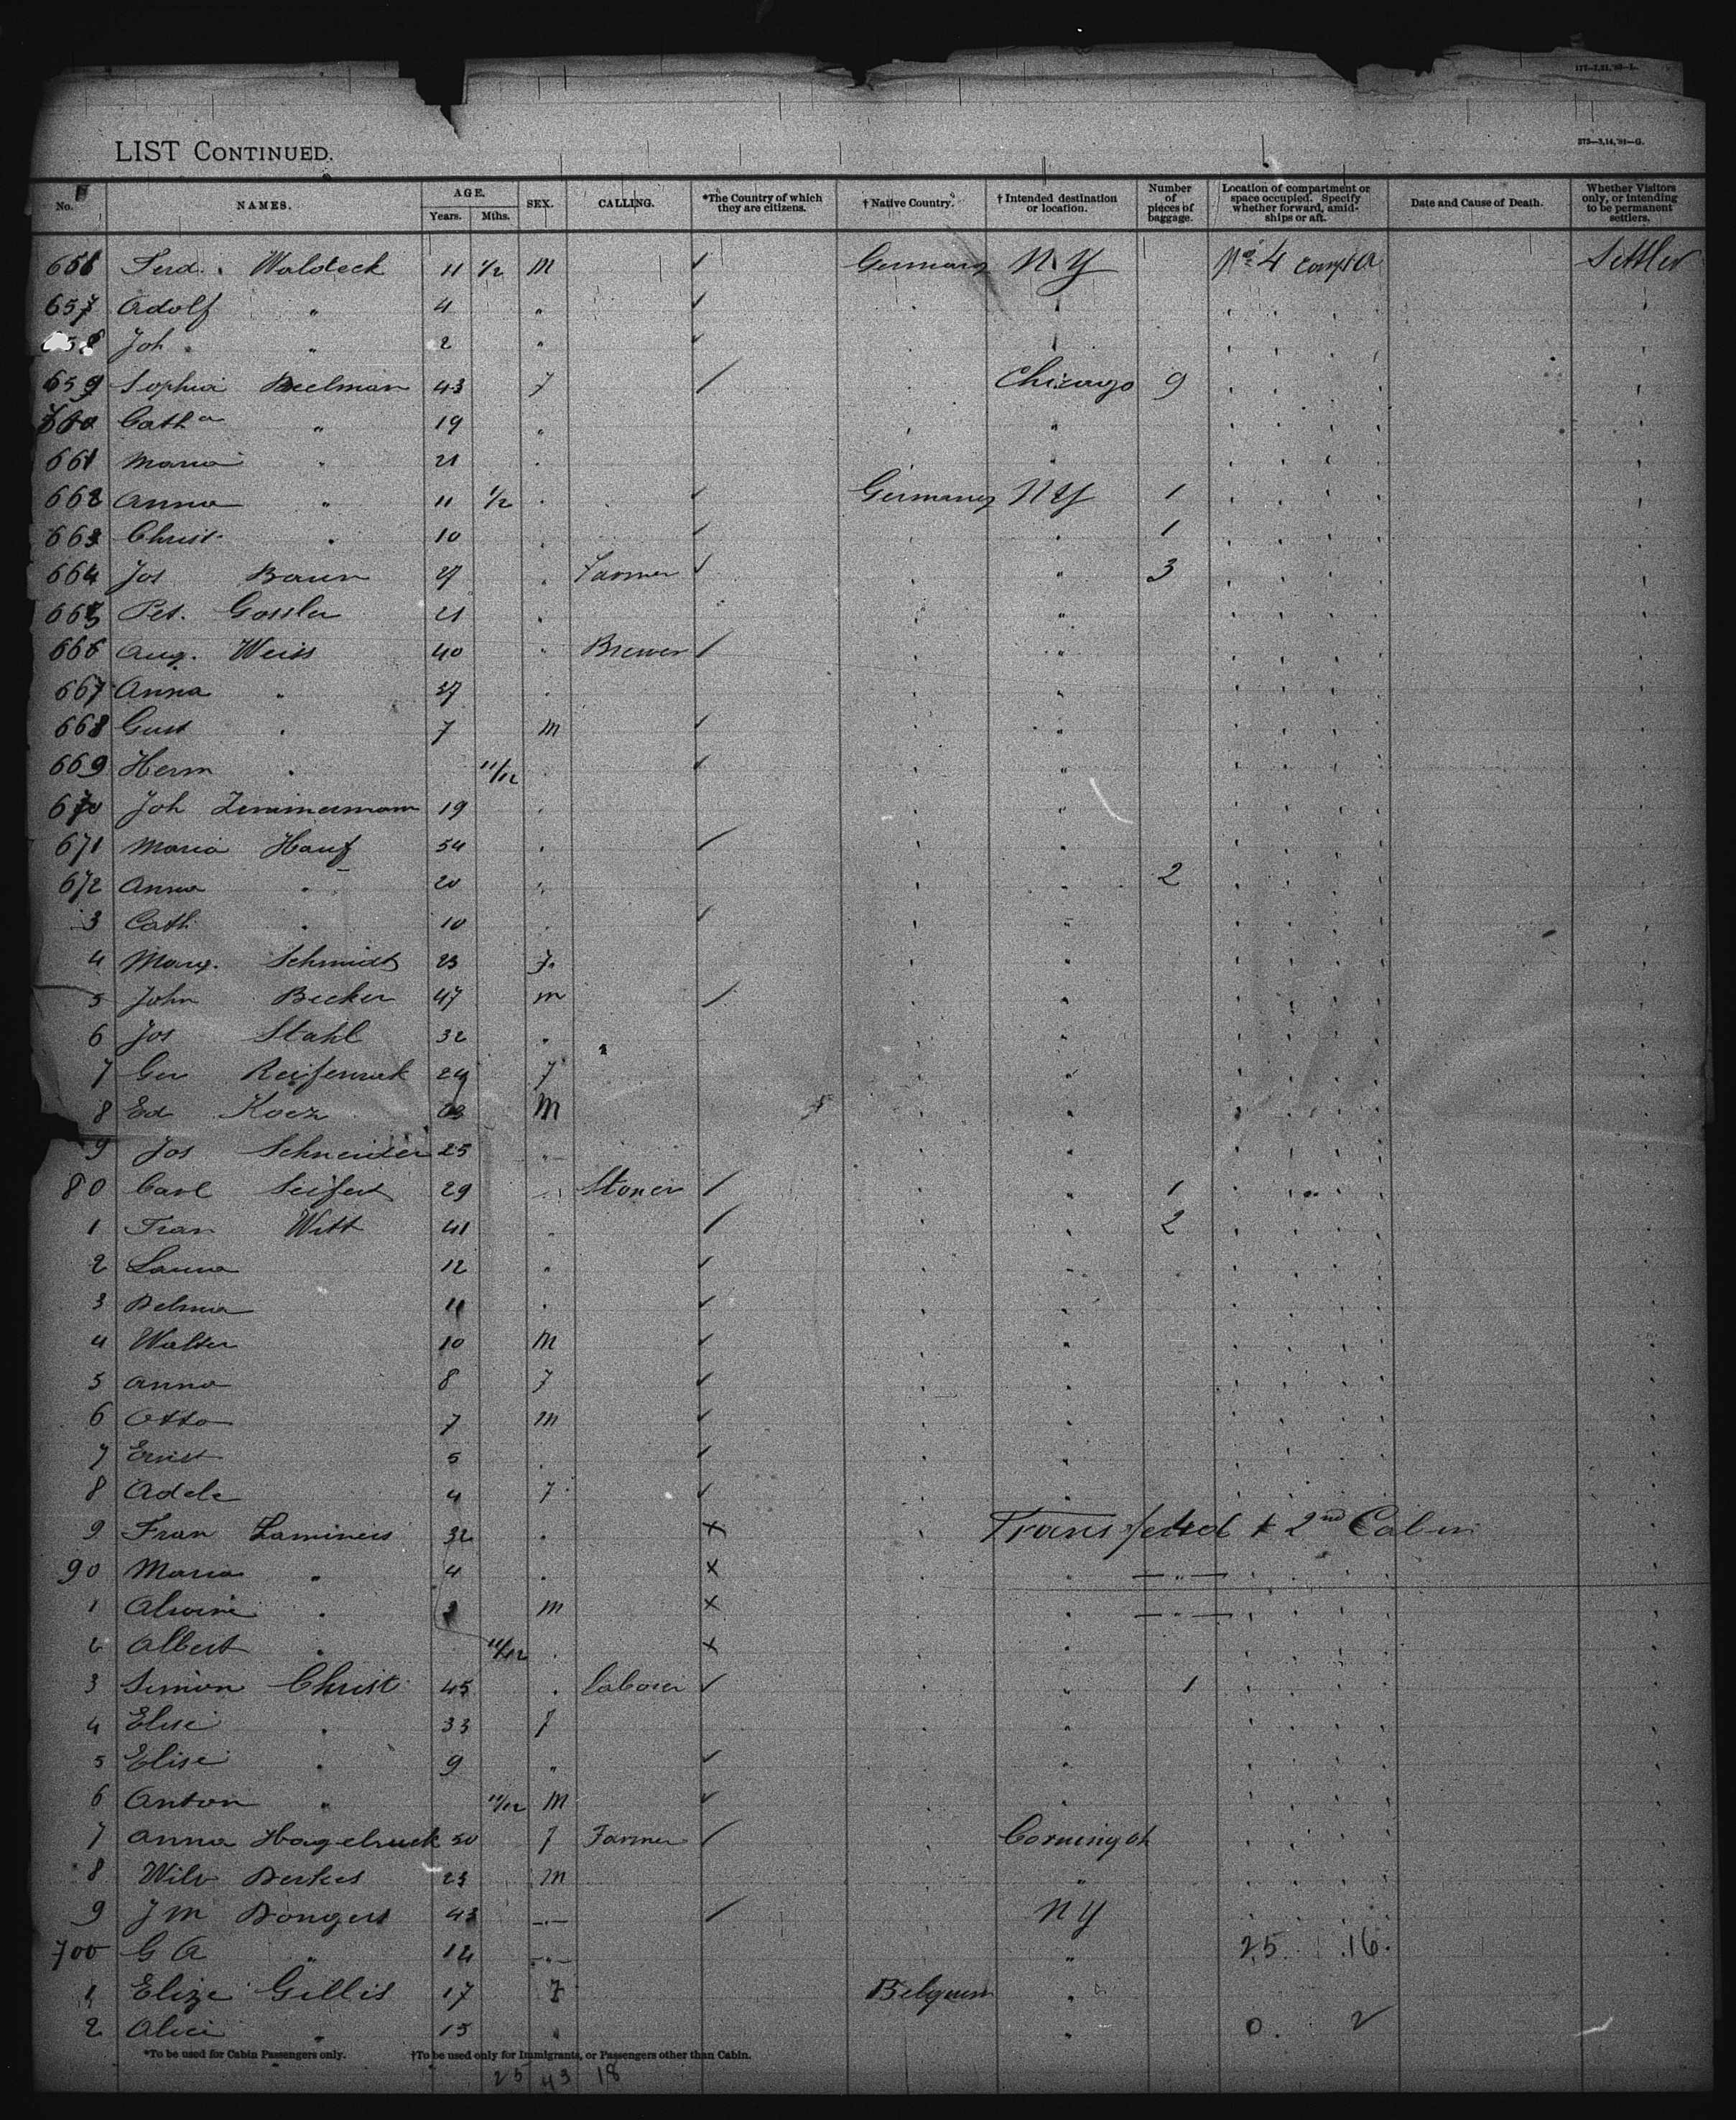 177—7,21,'90—L.
LIST CONTINUED.
272—3,14,'91—G.
No. NAMES. AGE. Years. Mths. SEX. CALLING. *The Country of which they are citizens. †Native Country. †Intended destination or location. Number of pieces of baggage. Location of compartment or space occupied. Specify whether forward, amidships or aft. Date and Cause of Death. Whether Visitors only, or intending to be permanent settlers.
656 Ferd. Waldeck 11 1/2 M ✓ Germany NY No 4 Settler
657 Adolf " 4 " ✓
658 Joh " 2 " ✓
659 Sophia Beelman 43 f / Chicago 9
660 Catha " 19 " "
661 Maria " 21 "
662 Anna " 11 1/2 ✓ Germany NY 1
663 Christ " 10 / " 1
664 Jos Baun 27 Farmer ✓ " 3
665 Pet. Gossler 21 "
666 Aug. Weiss 40 " Brewer / "
667 Anna " 37 "
668 Gust " 7 M ✓ "
669 Herm " 11/12 ✓ "
670 Joh Zimmermann 19 "
671 Maria Hauf 54 / "
672 Anna " 20 " 2
3 Cath " 10 ✓ "
4 Marg. Schmidt 23 f "
5 John Becker 47 m / "
6 Jos Stahl 32 " "
7 Ger 24 f "
8 Ed Kocz M "
9 Jos Schneider 25 " "
80 Carl Seifert 29 " Stoner / " 1
1 Fran Witt 41 " / " 2
2 12 " ✓ "
3 11 " ✓ "
4 Walter 10 M ✓ "
5 Anna 8 f ✓ "
6 Otto 7 m ✓ "
7 Ernst 5 ✓ "
8 Adele 4 f ✓ "
9 Fran 32 x Transferred t 2nd Cabin
90 Maria " 4 x " — " —
1 Alwine " m x " — " —
2 Albert " 11/12 x "
3 Simon Christ 45 " laborer ✓ " 1
4 Elise " 33 f "
5 Elise " 9 " ✓ "
6 Anton " 11/12 M ✓ "
7 Anna Hagelruck 50 f Farmer / Corning Oh
8 Wilv Derkes 23 m "
9 J M Dongers 43 — " — / NY
700 G A " 12 — " — " 25 16
1 Elize Gillis 17 f Belgium "
2 Alici " 15 " " 0 2
*To be used for Cabin Passengers only. †To be used only for Immigrants, or Passengers other than Cabin.
25 43 18